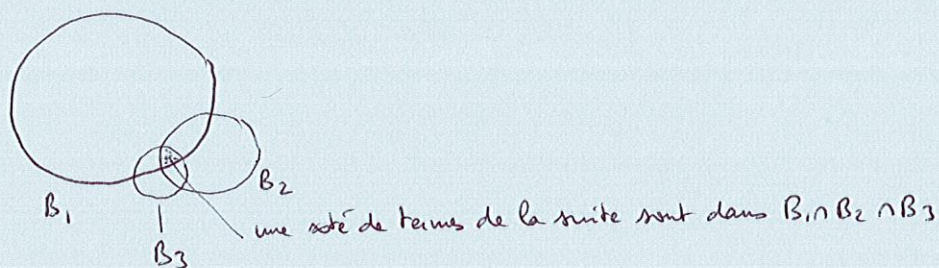 B₁
B₂
B₃
une xoté de termes de la suite sont dans B₁∩B₂∩B₃